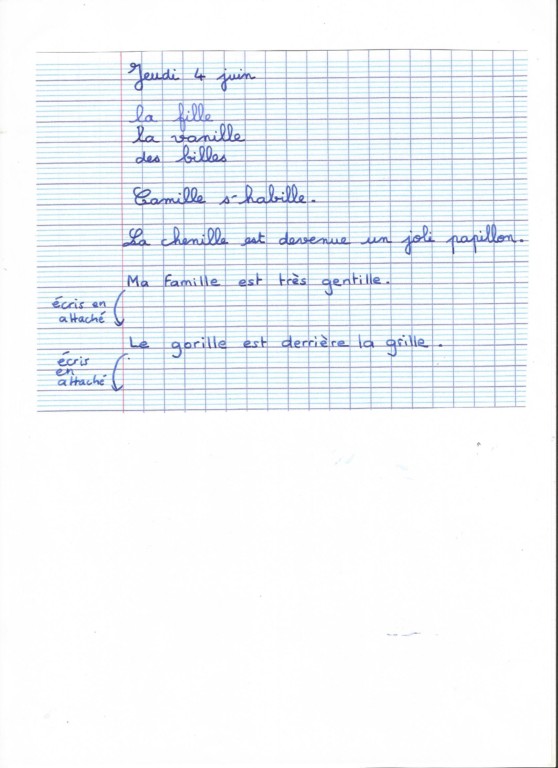 Jeudi 4 juin
la fille
la vanille
des billes
Camille s'habille.
La chenille est devenue un joli papillon.
Ma famille est très gentille.
écris en
attaché
Le gorille est derrière la grille.
écris
en
attaché